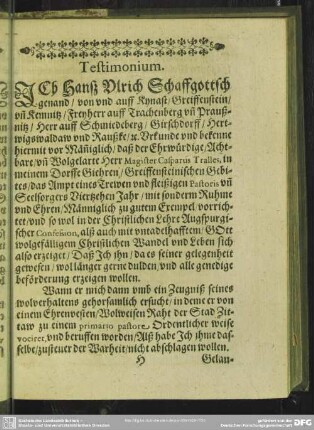 Testimonium.
ICh Hanß Vlrich Schaffgottsch
genand / von vnd auff Kynast / Greiffenstein /
vñ Kemnitz / Freyherr auff Trachenberg vñ Prauß-
nitz / Herr auff Schmiedeberg / Girschdorff / Hert-
wigswaldaw vnd Raußke / ꝛc. Vrkunde vnd bekenne
hiermit vor Mäniglich / daß der Ehrwürdige / Acht-
bare / vñ Wolgelarte Herr Magister Casparus Tralles, in
meinem Dorffe Giehren / Greiffensteinischen Gebie-
tes / das Ampt eines Trewen vnd fleißigen Pastoris vñ
Seelsorgers Viertzehen Jahr / mit sonderm Ruhme
vnd Ehren / Männiglich zu gutem Exempel vorrich-
tet / vnd so wol in der Christlichen Lehre Augspurgi-
scher Confession, alß auch mit vntadelhafftem / GOtt
wolgefälligem Christlichen Wandel vnd Leben sich
also erzeiget / Daß Ich ihn / da es seiner gelegenheit
gewesen / wol länger gerne dulden / vnd alle genedige
beförderung erzeigen wollen.
Wann er mich dann vmb ein Zeugniß seines
wolverhaltens gehorsamlich ersucht / in deme er von
einem Ehrenvesten / Wolweisen Raht der Stad Zit-
taw zu einem primario pastore Ordentlicher weise
vociret, vnd beruffen worden / Alß habe Ich ihme das-
selbe / zu steuer der Warheit / nicht abschlagen wollen.
H Gelan-